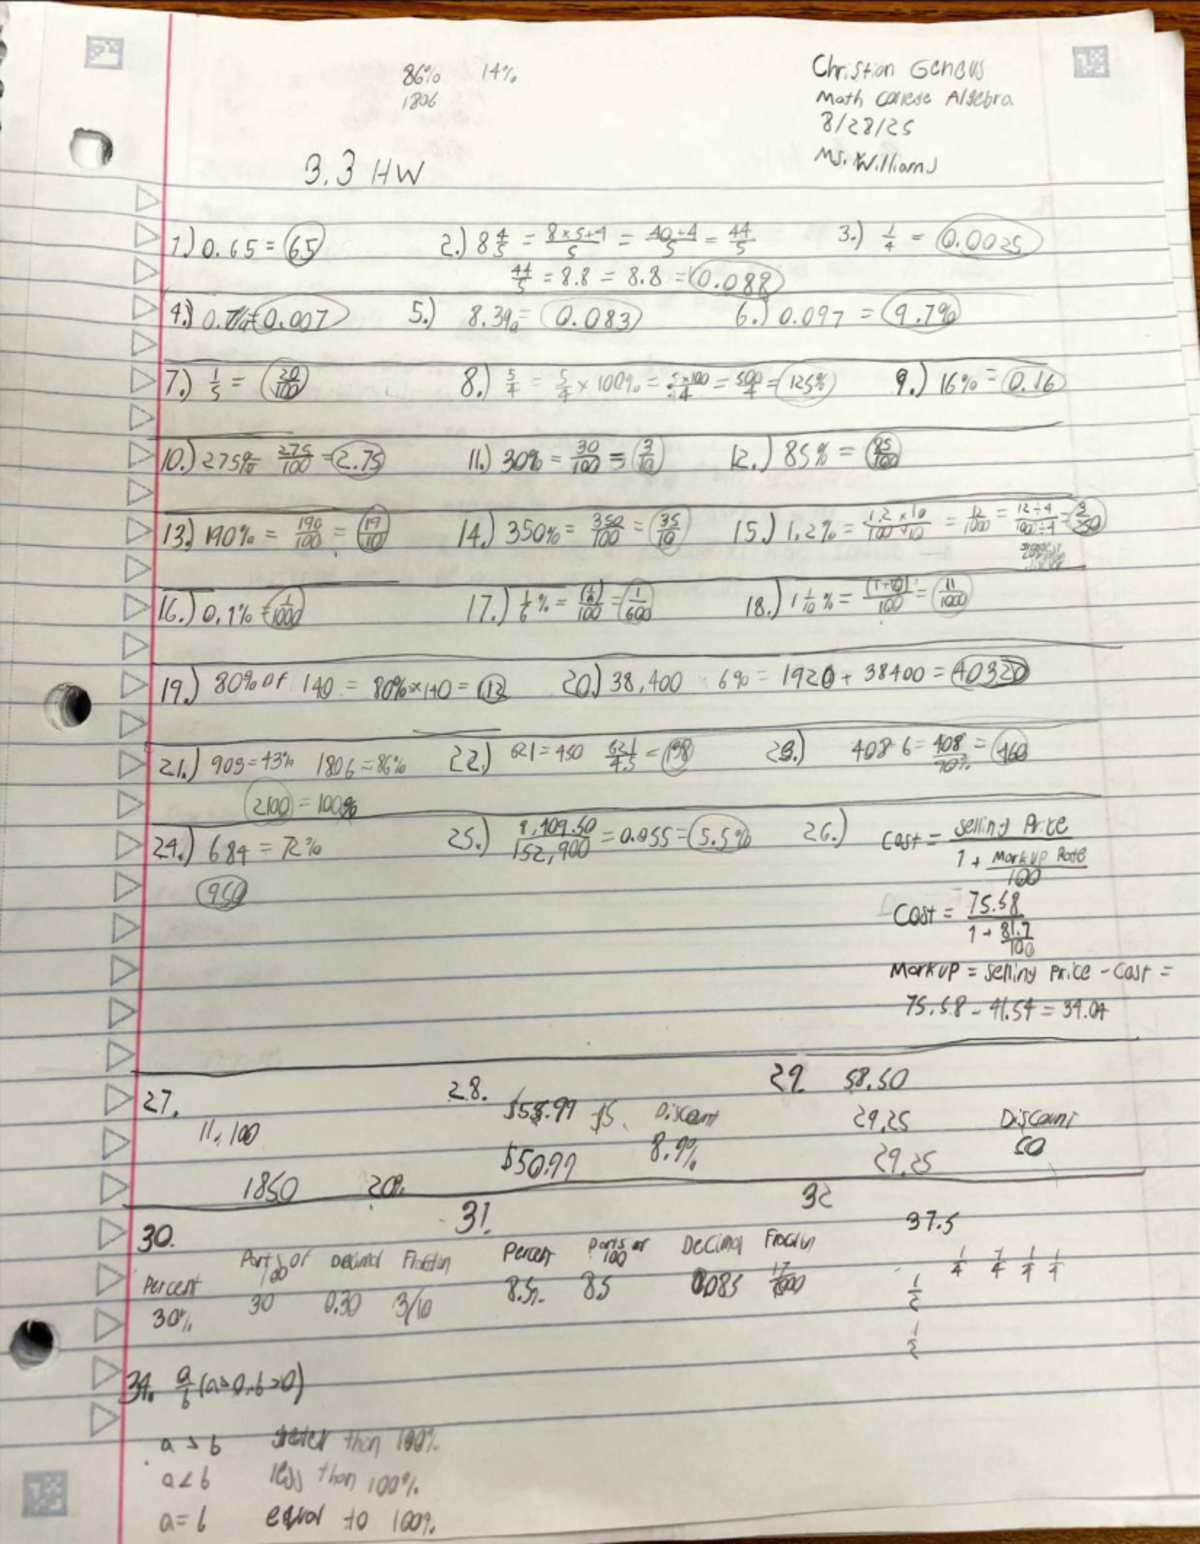 86% 14%
1806
Christian Geneus
Math College Algebra
8/28/25
Ms. Williams
3.3 HW
1.) 0.65 = 65 2.) 8 4/5 = 8×5+4/5 = 40+4/5 = 44/5 3.) 1/4 = 0.0025
44/5 = 8.8 = 8.8 = 0.088
4.) 0.7% = 0.007 5.) 8.3% = 0.083 6.) 0.097 = 9.7%
7.) 1/5 = 20/100 8.) 5/4 = 5/4 × 100% = 5×100/4 = 500/4 = 125% 9.) 16% = 0.16
10.) 275% = 275/100 = 2.75 11.) 30% = 30/100 = 3/10 12.) 85% = 85/100
13.) 190% = 190/100 = 19/10 14.) 350% = 350/100 = 35/10 15.) 1.2% = 1.2×10/100×10 = 12/1000 = 12÷4/1000÷4 = 3/250
16.) 0.1% = 1/1000 17.) 1/6 % = (1/6)/100 = 1/600 18.) 1 1/10 % = (1+1/10)/100 = 11/1000
19.) 80% of 140 = 80% × 140 = 112 20.) 38,400 × 6% = 1920 + 38400 = 40320
21.) 903 = 43% 1806 = 86% 22.) 621 = 450 621/4.5 = 138 23.) 408 6 = 408/90% = 460
2100 = 100%
24.) 684 = 72% 25.) 8,409.50/152,900 = 0.055 = 5.5% 26.) Cost = Selling Price/1 + Markup Rate/100
950
Cost = 75.58/1 + 81.7/100
Markup = Selling Price - Cost =
75.58 - 41.54 = 34.04
27. 28. 29. 58.50
11,100 $55.99 $5. Discount 29.25 Discount
1850 20% $50.99 8.9% 29.25 50
30. 31. 32 37.5
Percent Parts of 100 Decimal Fraction Percent Parts of 100 Decimal Fraction 1/4 1/4 1/4 1/4
30% 30 0.30 3/10 8.5% 85 0.085 17/1000 1/2
1/2
34. a/b (a>0, b>0)
a > b greater than 100%
a < b less than 100%
a = b equal to 100%